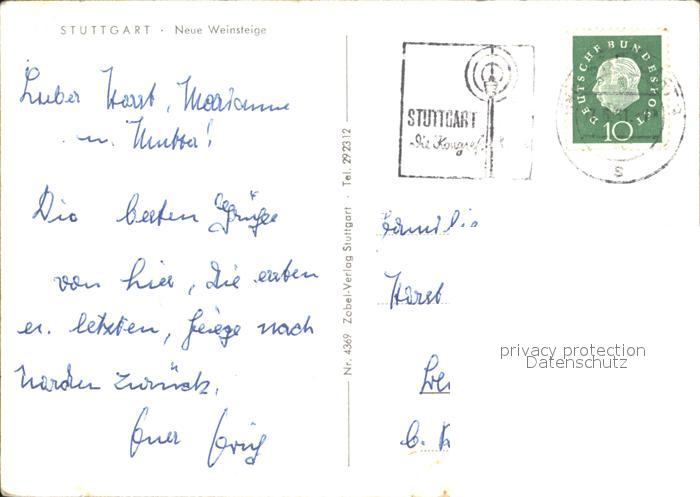 STUTTGART · Neue Weinsteige
Lieber Horst, Marianne
u. Mutta!
Die besten Grüße
von hier, die ersten
u. letzten, fliege nach
Norden zurück.
Euer
Nr. 4369 Zobel-Verlag Stuttgart · Tel. 292312
STUTTGART
Die Kongreß
DEUTSCHE BUNDESPOST
10
S
Familie
Horst
privacy protection
Datenschutz